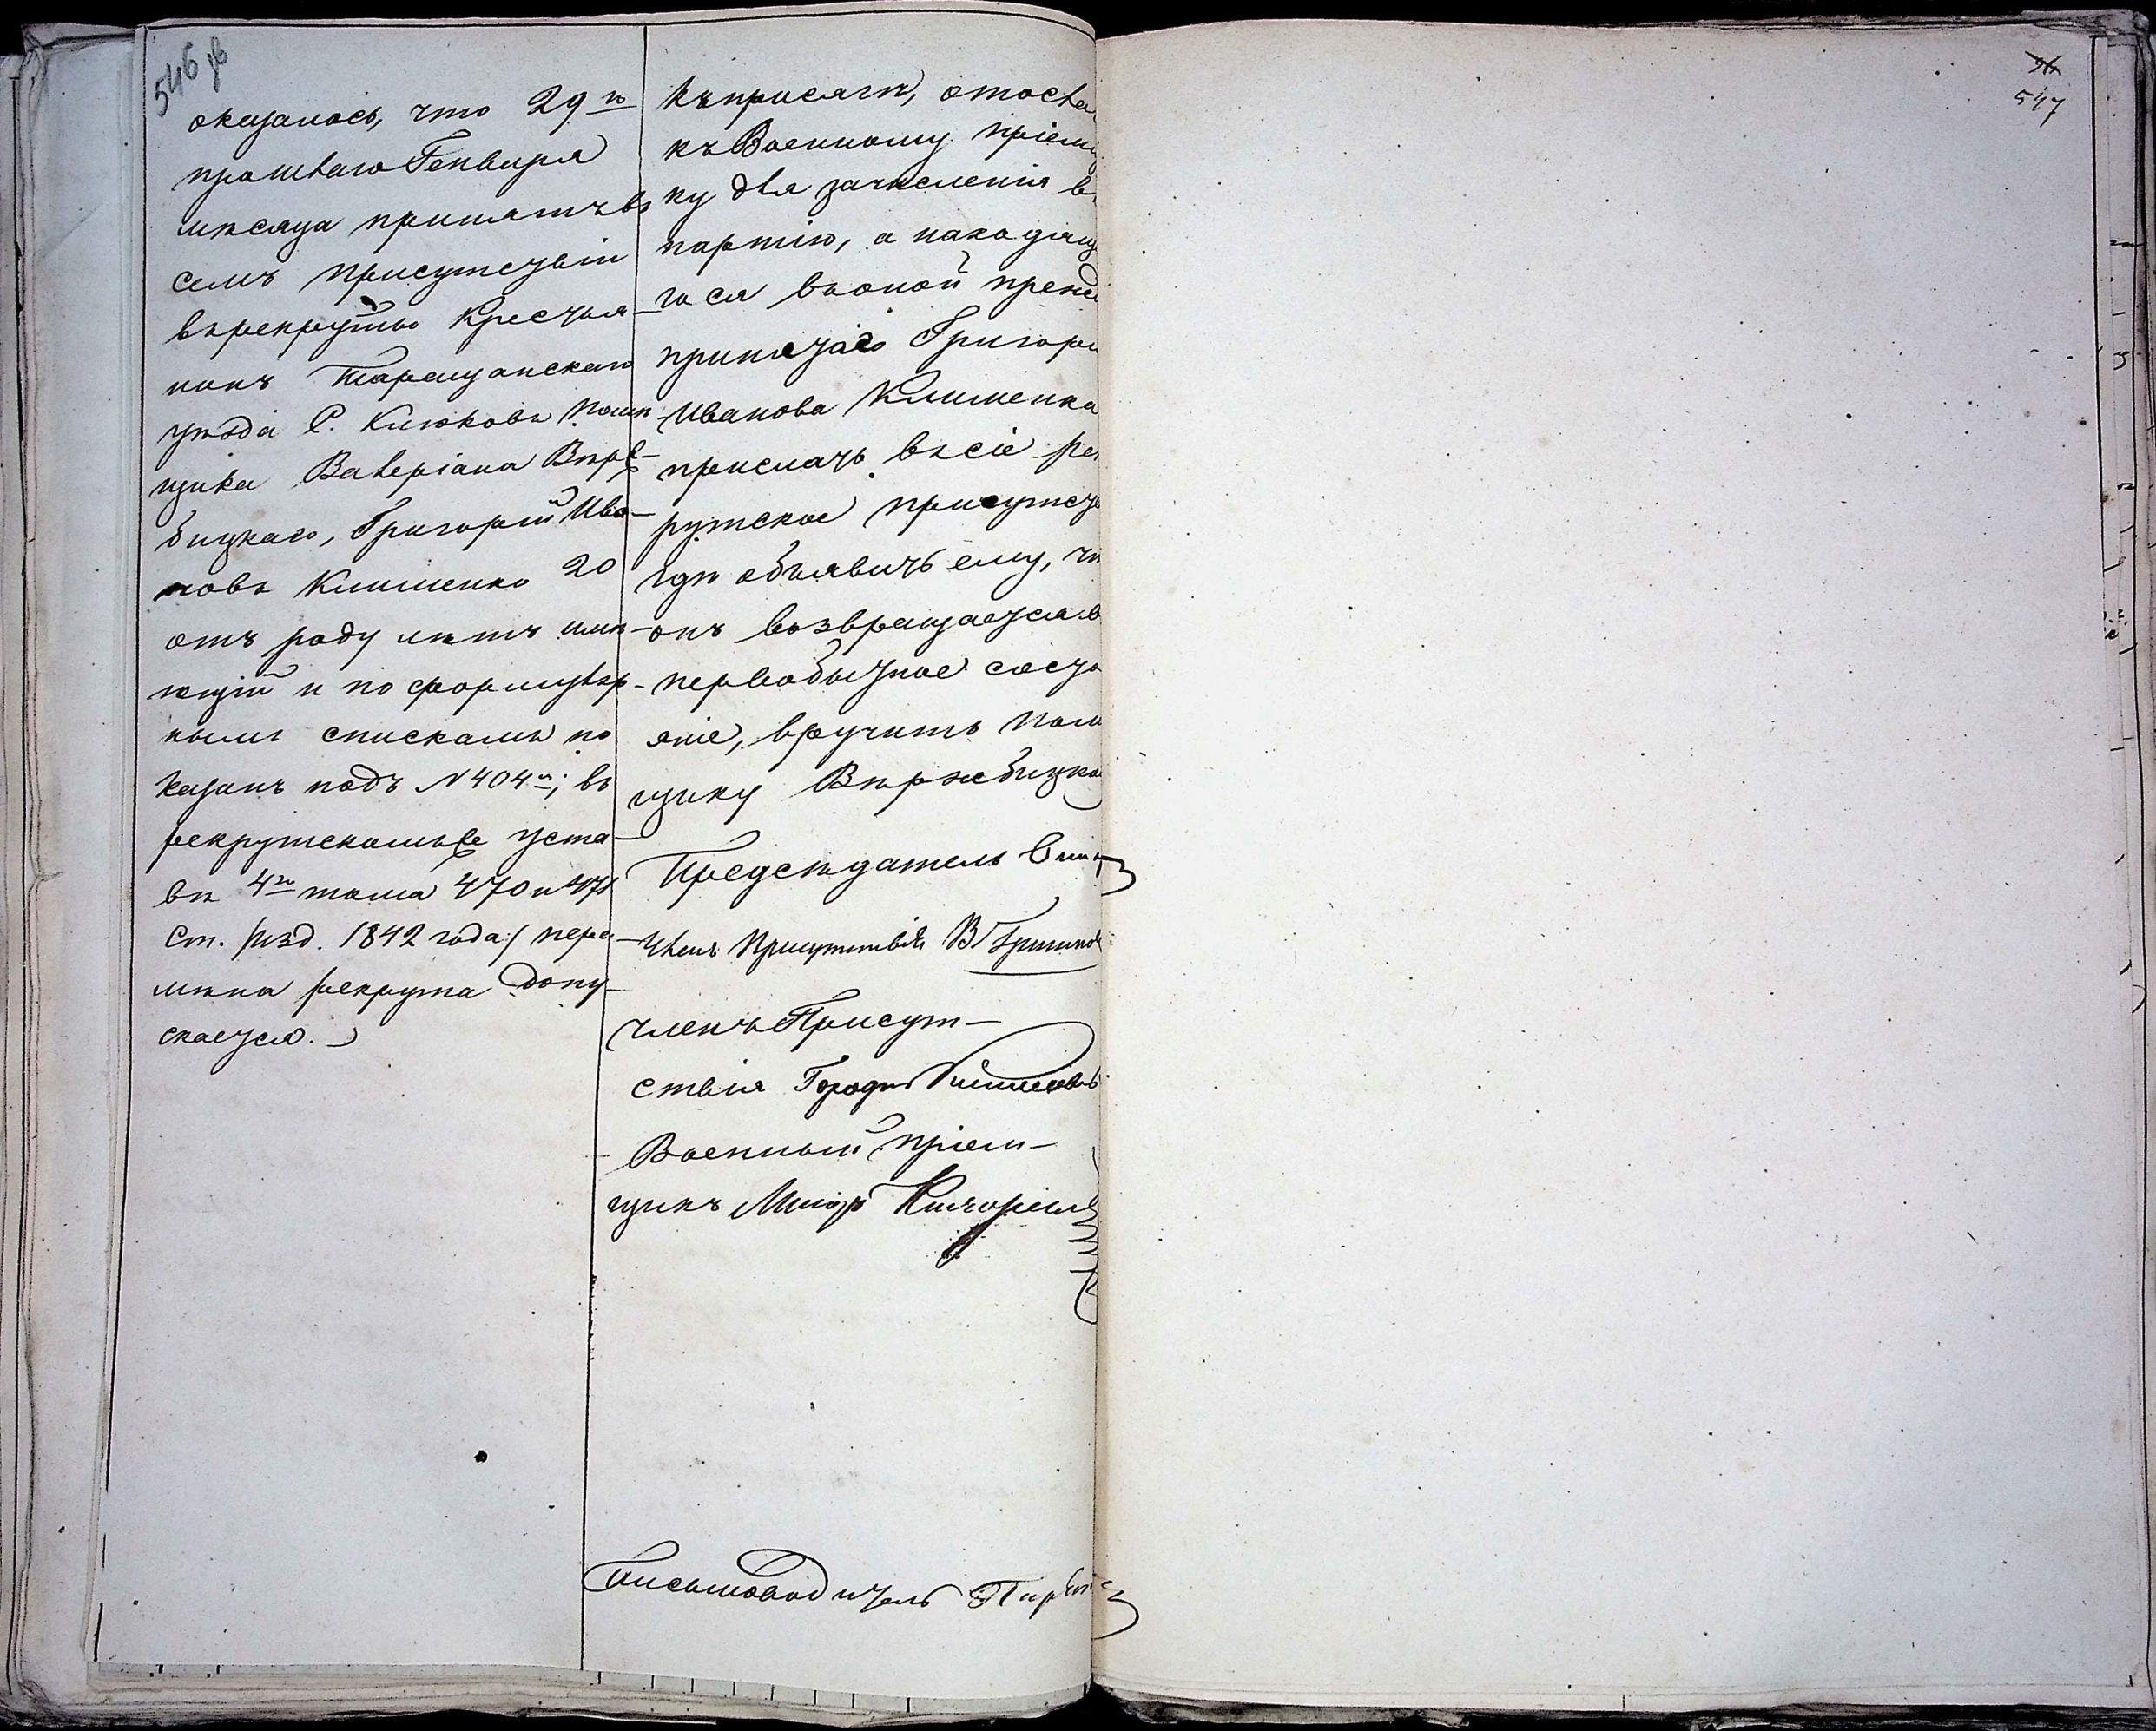 546 об
оказалось, что 29го
прошлаго Генваря
мѣсяца принятъ въ
семъ присутствіи
въ рекруты Крестья-
нинъ Таращанскаго
уѣзда С. Клюковъ Помѣ
щика Валеріана Вѣрж-
бицкаго, Григорій Ива-
новъ Клименко 20
отъ роду лѣтъ имѣ-
ющій и по формуляр-
нымъ спискамъ по
казанъ подъ №404м; въ
рекрутскомъ же уста-
вѣ 4го тома 470 и 471
Ст. /изд. 1842 года/ пере-
мѣна рекрута допу-
скается.
къ присягѣ, отосла
къ Военному пріемщ
ку для зачисленія въ
партію, а находяща
гося въ оной прежд
принятаго Григорія
Иванова Клименка
прислать въ сіе рек
рутское присутств
гдѣ объявить ему, что
онъ возвращается въ
первобытное состо
яніе, вручить Помѣ
щику Вѣржбицко
Предсѣдатель
Членъ Присутствія В
членъ Присут-
ствія Город
Военный пріем-
щикъ Маіоръ
Письмоводитель
547